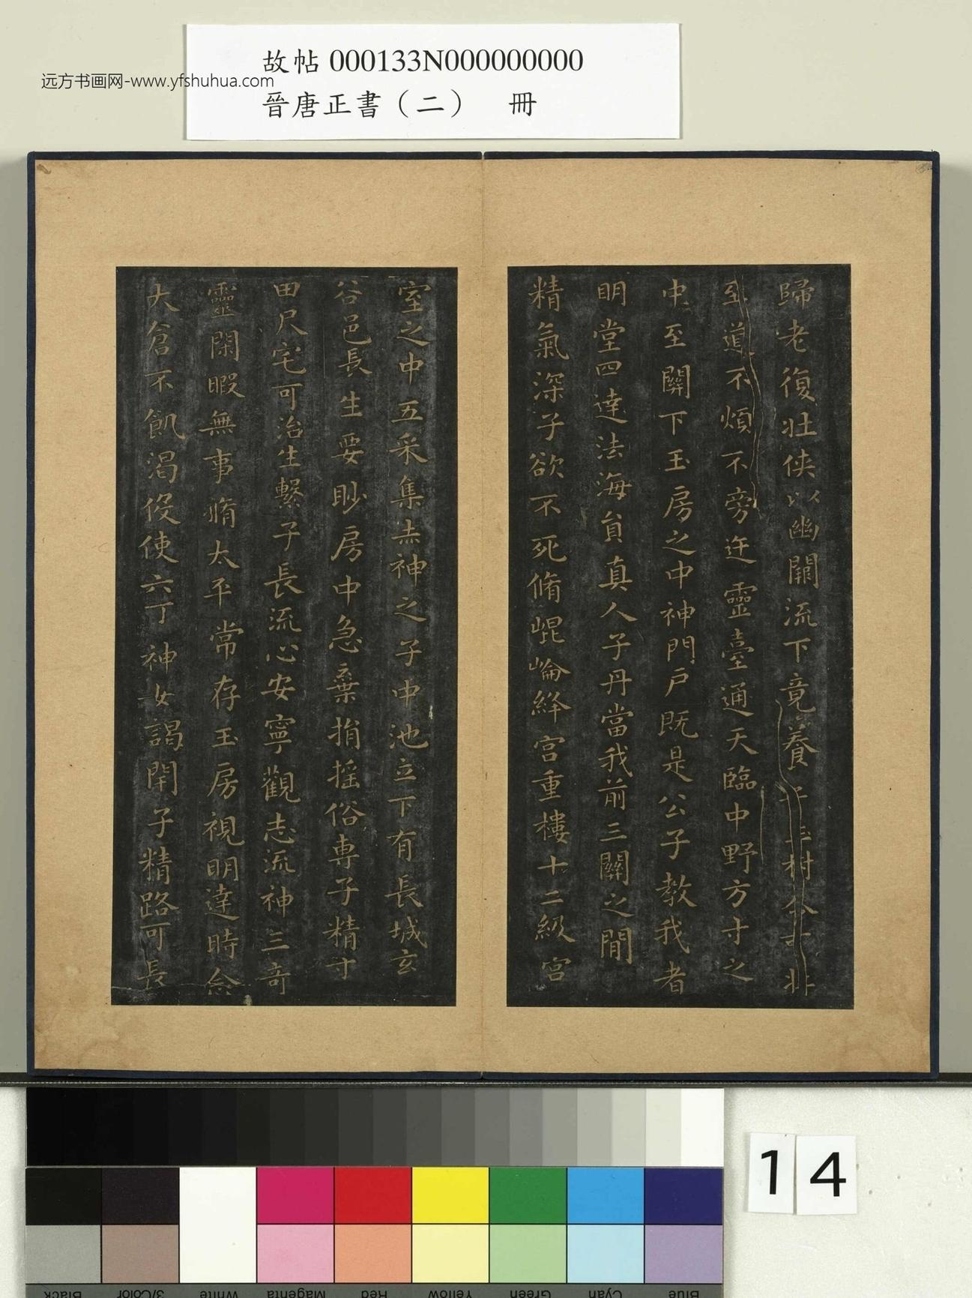 故帖 000133N000000000
远方书画网-www.yfshuhua.com
晉唐正書（二） 冊
歸老復壯俠以幽闕流下竟養子玉樹令可壯
至道不煩不旁迕靈臺通天臨中野方寸之
中至關下玉房之中神門戶既是公子教我者
明堂四達法海員真人子丹當我前三關之間
精氣深子欲不死脩崐崘絳宮重樓十二級宮
室之中五采集赤神之子中池立下有長城玄
谷邑長生要眇房中急棄捐摇俗專子精寸
田尺宅可治生繫子長流心安寧觀志流神三奇
靈閑暇無事脩太平常存玉房視明達時念
大倉不飢渴役使六丁神女謁閇子精路可長
14
Black
3/Color
White
Magenta
Red
Yellow
Green
Cyan
Blue